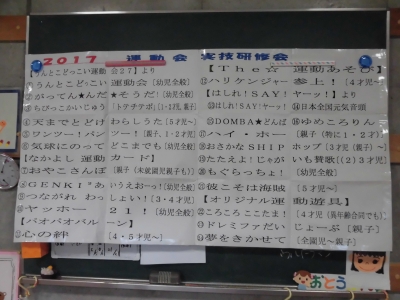 2017 運動会 実技研修会
【うんとこどっこい運動会27】より
①うんとこどっこい運動会〔幼児全般〕
②がってん★んだ★そうだ!〔幼児全般〕
③ちびっこかいじゅう「トクチテポ」〔1・3才児,親子〕
④天主でとどけわらしうた〔5才児~〕
⑤ワンツー!パンツー!〔親子、1・2才児〕
⑥気球にのってどこまでも〔幼児全般〕
【なかよし運動カード】
⑦おやこさんぽ〔親子(未就園児親子も)〕
⑧GENKI*あいうえおーっ!〔幼児全般〕
⑨つながれわっしょい!〔3・4才児〕
⑩ヤッホー21!〔幼児全般〕
【パオパオバルーン】
⑪心の絆〔4・5才児~〕
【The☆運動あそび】
⑫ハリケンジャー参上!〔4才児~〕
【はしれ!SAY!ヤーッ!】より
⑬はしれ!SAY!ヤーッ!〔幼児全般〕
⑭日本全国元気音頭
⑮DOMBA★どんぱ
⑯ゆめころりん〔親子(特に1・2才)〕
⑰ハイ・ホー
⑱おさかなSHIPホップ〔3才児(親子)~〕
⑲たたえよ!じゃがいも賛歌〔(2)3才児〕
⑳もぐらっちょ!〔幼児全般〕
彼こそは海賊〔5才児~〕
【オリジナル運動遊具】
ころころここたま!〔4才児(異年齢合同でも)〕
ドレミファだいじょーぶ〔親子〕
夢をきかせて〔全園児~親子〕
おとう